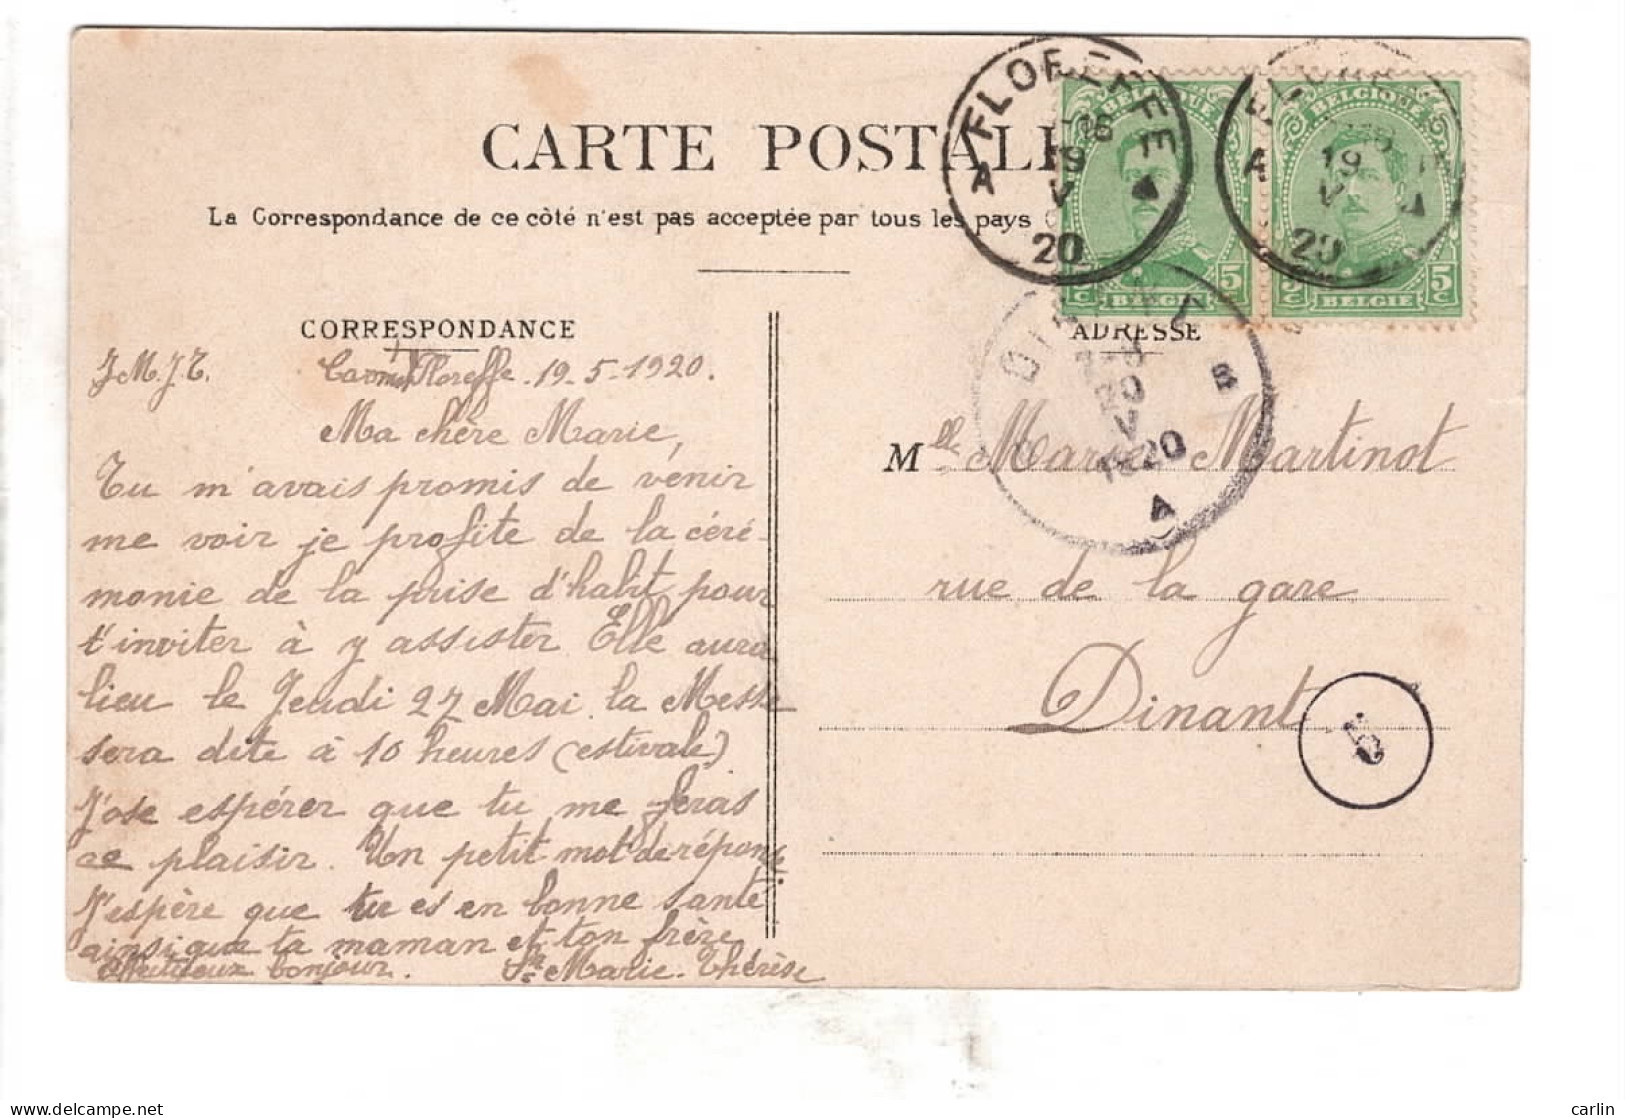 CARTE POSTALE
La Correspondance de ce côté n'est pas acceptée par tous les pays
FLOREFFE
A
16
19
V
20
A
19
V
20
BELGIQUE
5 c
BELGIE
BELGIQUE
5 c 5 c
BELGIE
CORRESPONDANCE
J.M.J.T. Carmel Floreffe. 19-5-1920.
Ma chère Marie,
Tu m'avais promis de venir
me voir je profite de la céré-
monie de la prise d'habit pour
t'inviter à y assister Elle aura
lieu le Jeudi 27 Mai. la Messe
sera dite à 10 heures (estivale)
J'ose espérer que tu me feras
ce plaisir. Un petit mot de réponse.
J'espère que tu es en bonne santé
ainsi que ta maman et ton frère
Affectueux bonjour. Sr Marie-Thérèse
ADRESSE
20
V
1920
B
A
Mlle Marie Martinot
rue de la gare
Dinant
5
carlin